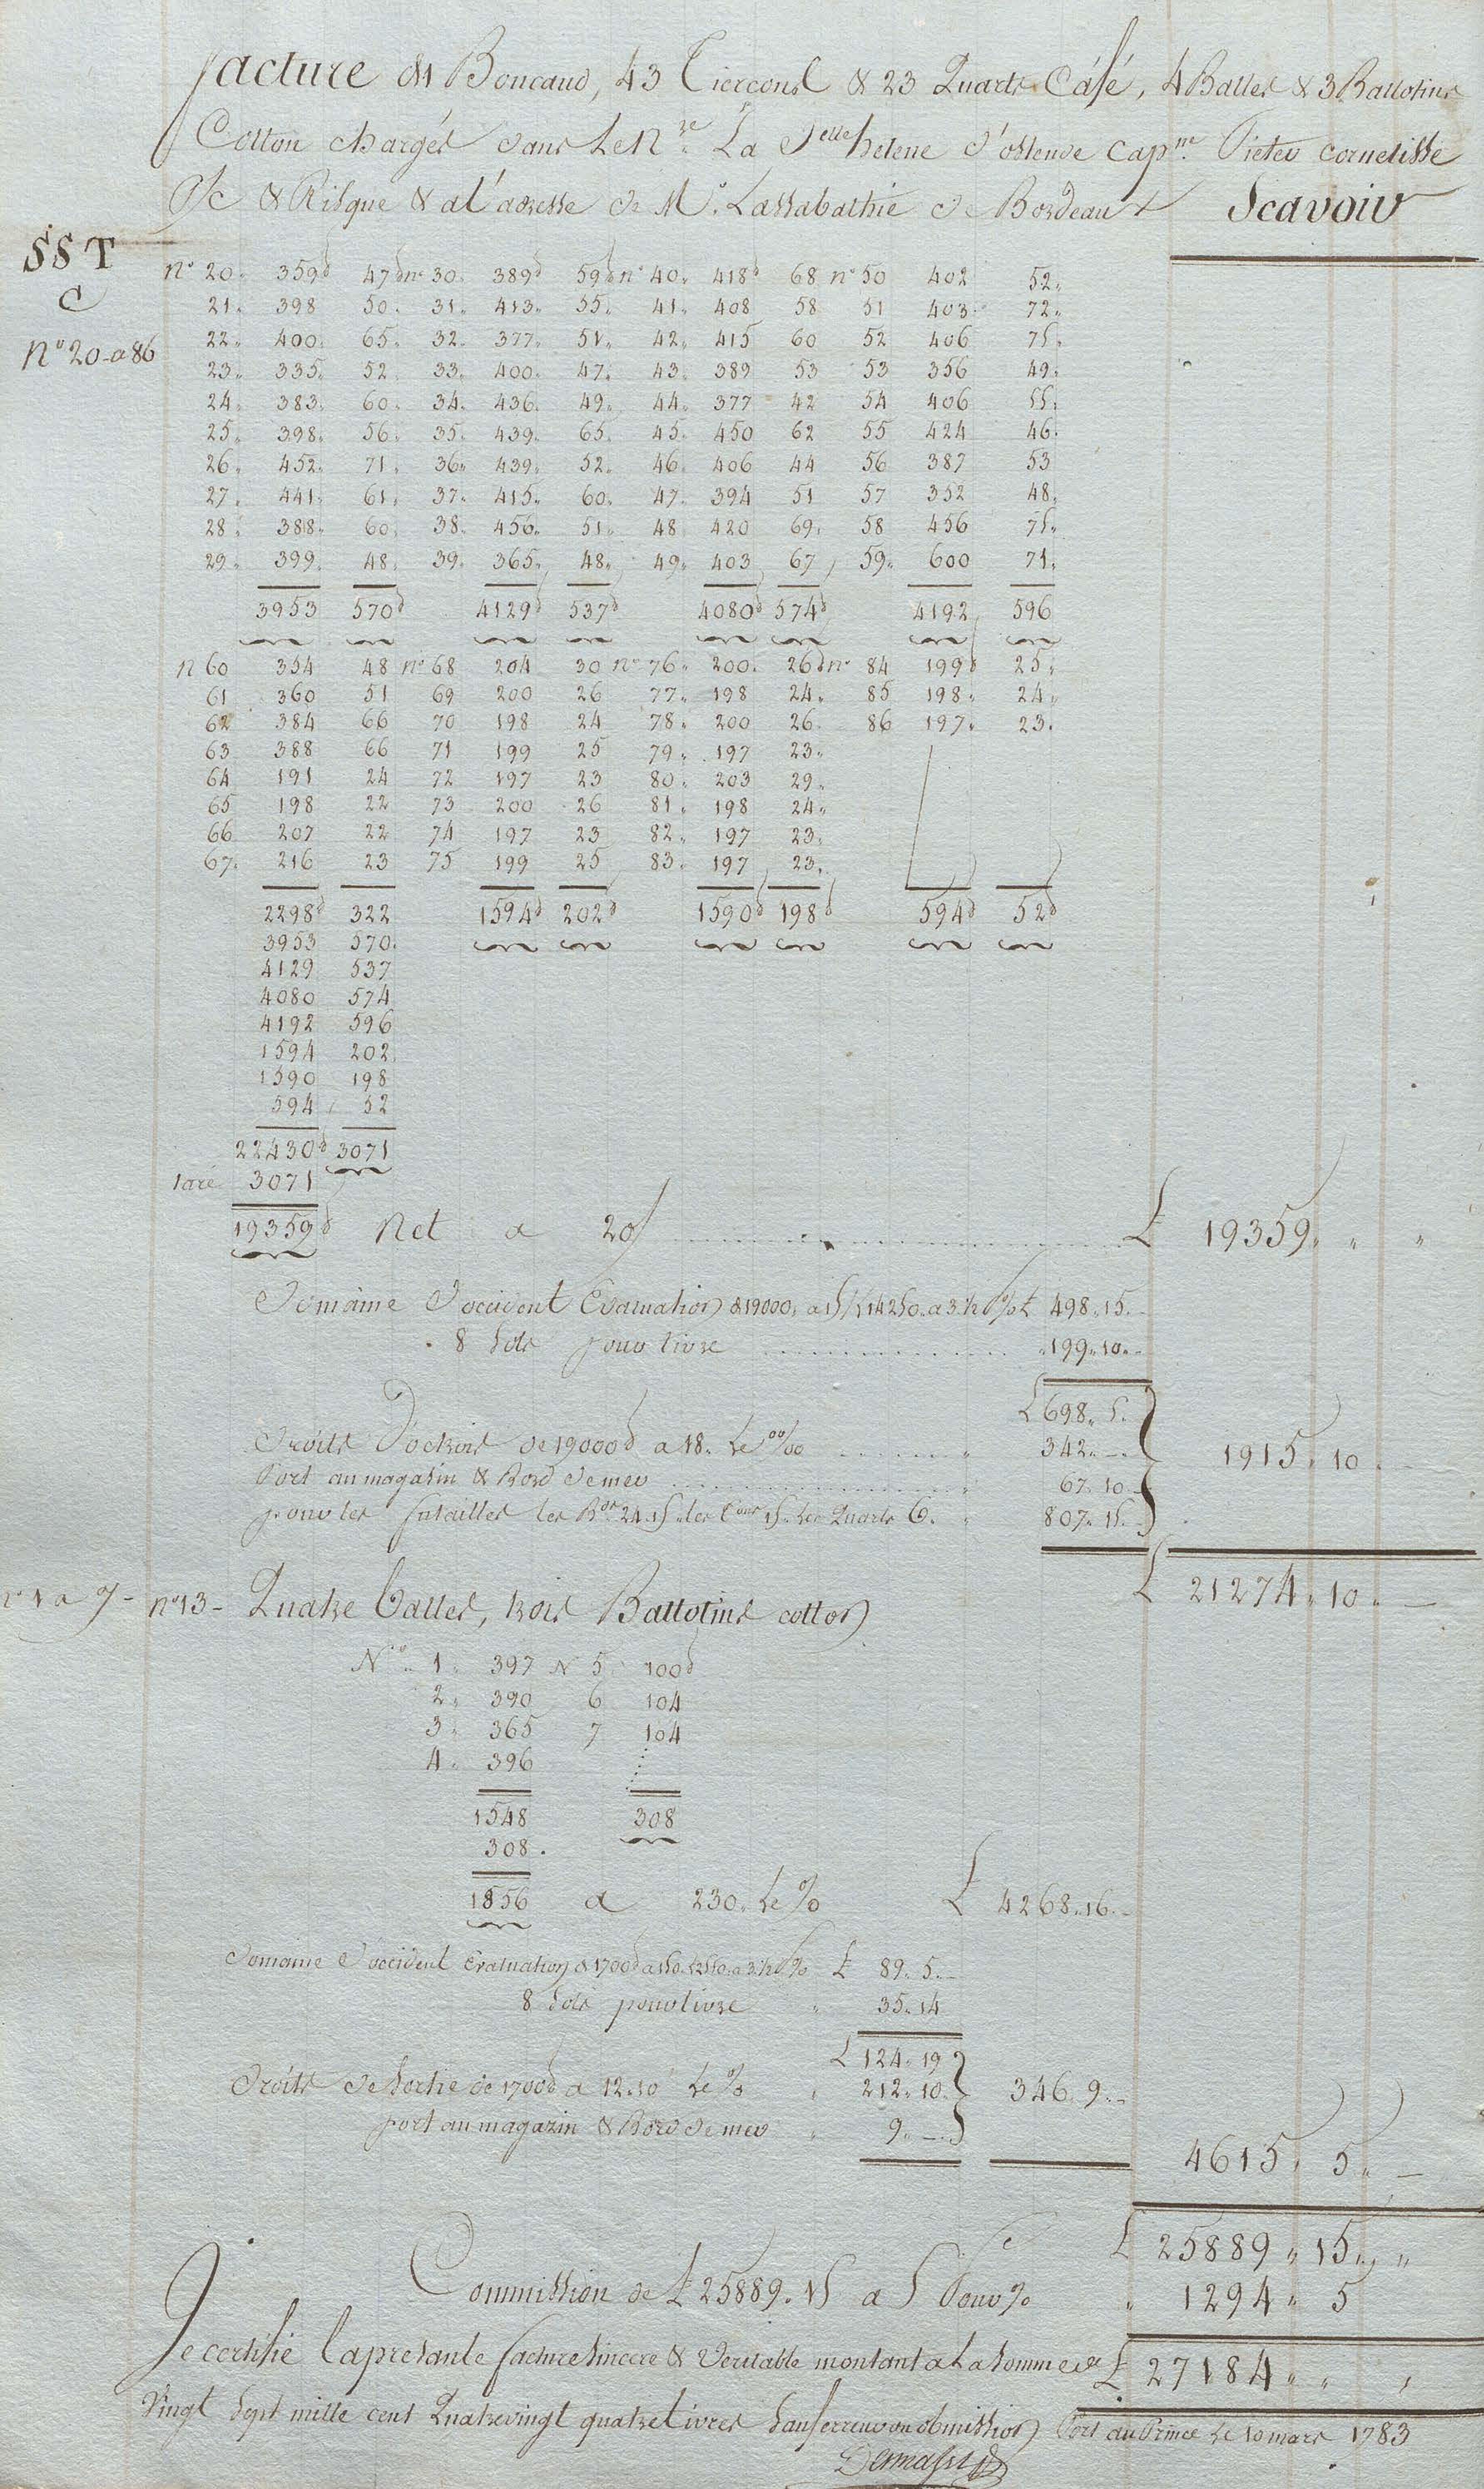 facture d'1 Boucaud, 43 Tierçons & 23 Quarts Café, 4 Balles & 3 Ballotins
Cotton chargés dans Le N.re La Delle helene d'ostende Capne. Pieter Cornelisse
P/C & Risque & a L'adresse de M.r Lassabathie de Bordeaux Scavoir
SST
C
N° 20 a 86
n° 20 359 47 n° 30 389 59 n° 40 418 68 n° 50 402 52
21 398 50 31 413 55 41 408 58 51 403 72
22 400 65 32 377 51 42 415 60 52 406 75
23 335 52 33 400 47 43 389 53 53 356 49
24 383 60 34 436 49 44 377 42 54 406 55
25 398 56 35 439 65 45 450 62 55 424 46
26 452 71 36 439 52 46 406 44 56 387 53
27 441 61 37 415 60 47 394 51 57 352 48
28 388 60 38 456 51 48 420 69 58 456 75
29 399 48 39 365 48 49 403 67 59 600 71
3953 570 4129 537 4080 574 4192 596
n 60 354 48 n° 68 204 30 n° 76 200 26 n° 84 199 25
61 360 51 69 200 26 77 198 24 85 198 24
62 384 66 70 198 24 78 200 26 86 197 23
63 388 66 71 199 25 79 197 23
64 191 24 72 197 23 80 203 29
65 198 22 73 200 26 81 198 24
66 207 22 74 197 23 82 197 23
67 216 23 75 199 25 83 197 23
2298 322 1594 202 1590 198 594 52
3953 570
4129 537
4080 574
4192 596
1594 202
1590 198
594 52
22430 3071
taré 3071
19359 Net a 20/ £ 19359 " "
Domaine d'occident Evaluation de 19000 a 15/ £ 14250 a 3 1/2 % £ 498.15.
8 sols pour livre 199.10.
£ 698.5.
Droits D'octrois de 19000 a 18 Le 00/00 342.— 1915.10
Port au magasin & Bord de mer 67.10
pour les futailles les Bou 24.15 les Cons 15 les Quarts 6. 807.15
£ 21274.10.—
n° 1 a 7 - n° 13 - Quatre balles, trois Ballotins cotton
N° 1 397 N 5 100
2 390 6 104
3 365 7 104
4 396
1548 308
308.
1856 a 230 Le % £ 4268.16.
Domaine d'occident Evaluation de 1700 a 150 £ 2550 a 3 1/2 % £ 89.5.
8 sols pour livre 35.14
£ 124.19
Droits de Sortie de 1700 a 12.10 Le % 212.10 346.9.
port au magazin & Bord de mer 9.—
4615. 5.—
£ 25889 " 15 "
Commission de £ 25889.15 a 5 Pour % " 1294 " 5
Je certifie la presante facture sincere & Veritable montant a La somme de £ 27184 " "
Vingt sept mille cent Quatrevingt quatre Livres sauf erreur ou obmission Port au Prince Le 10 mars 1783